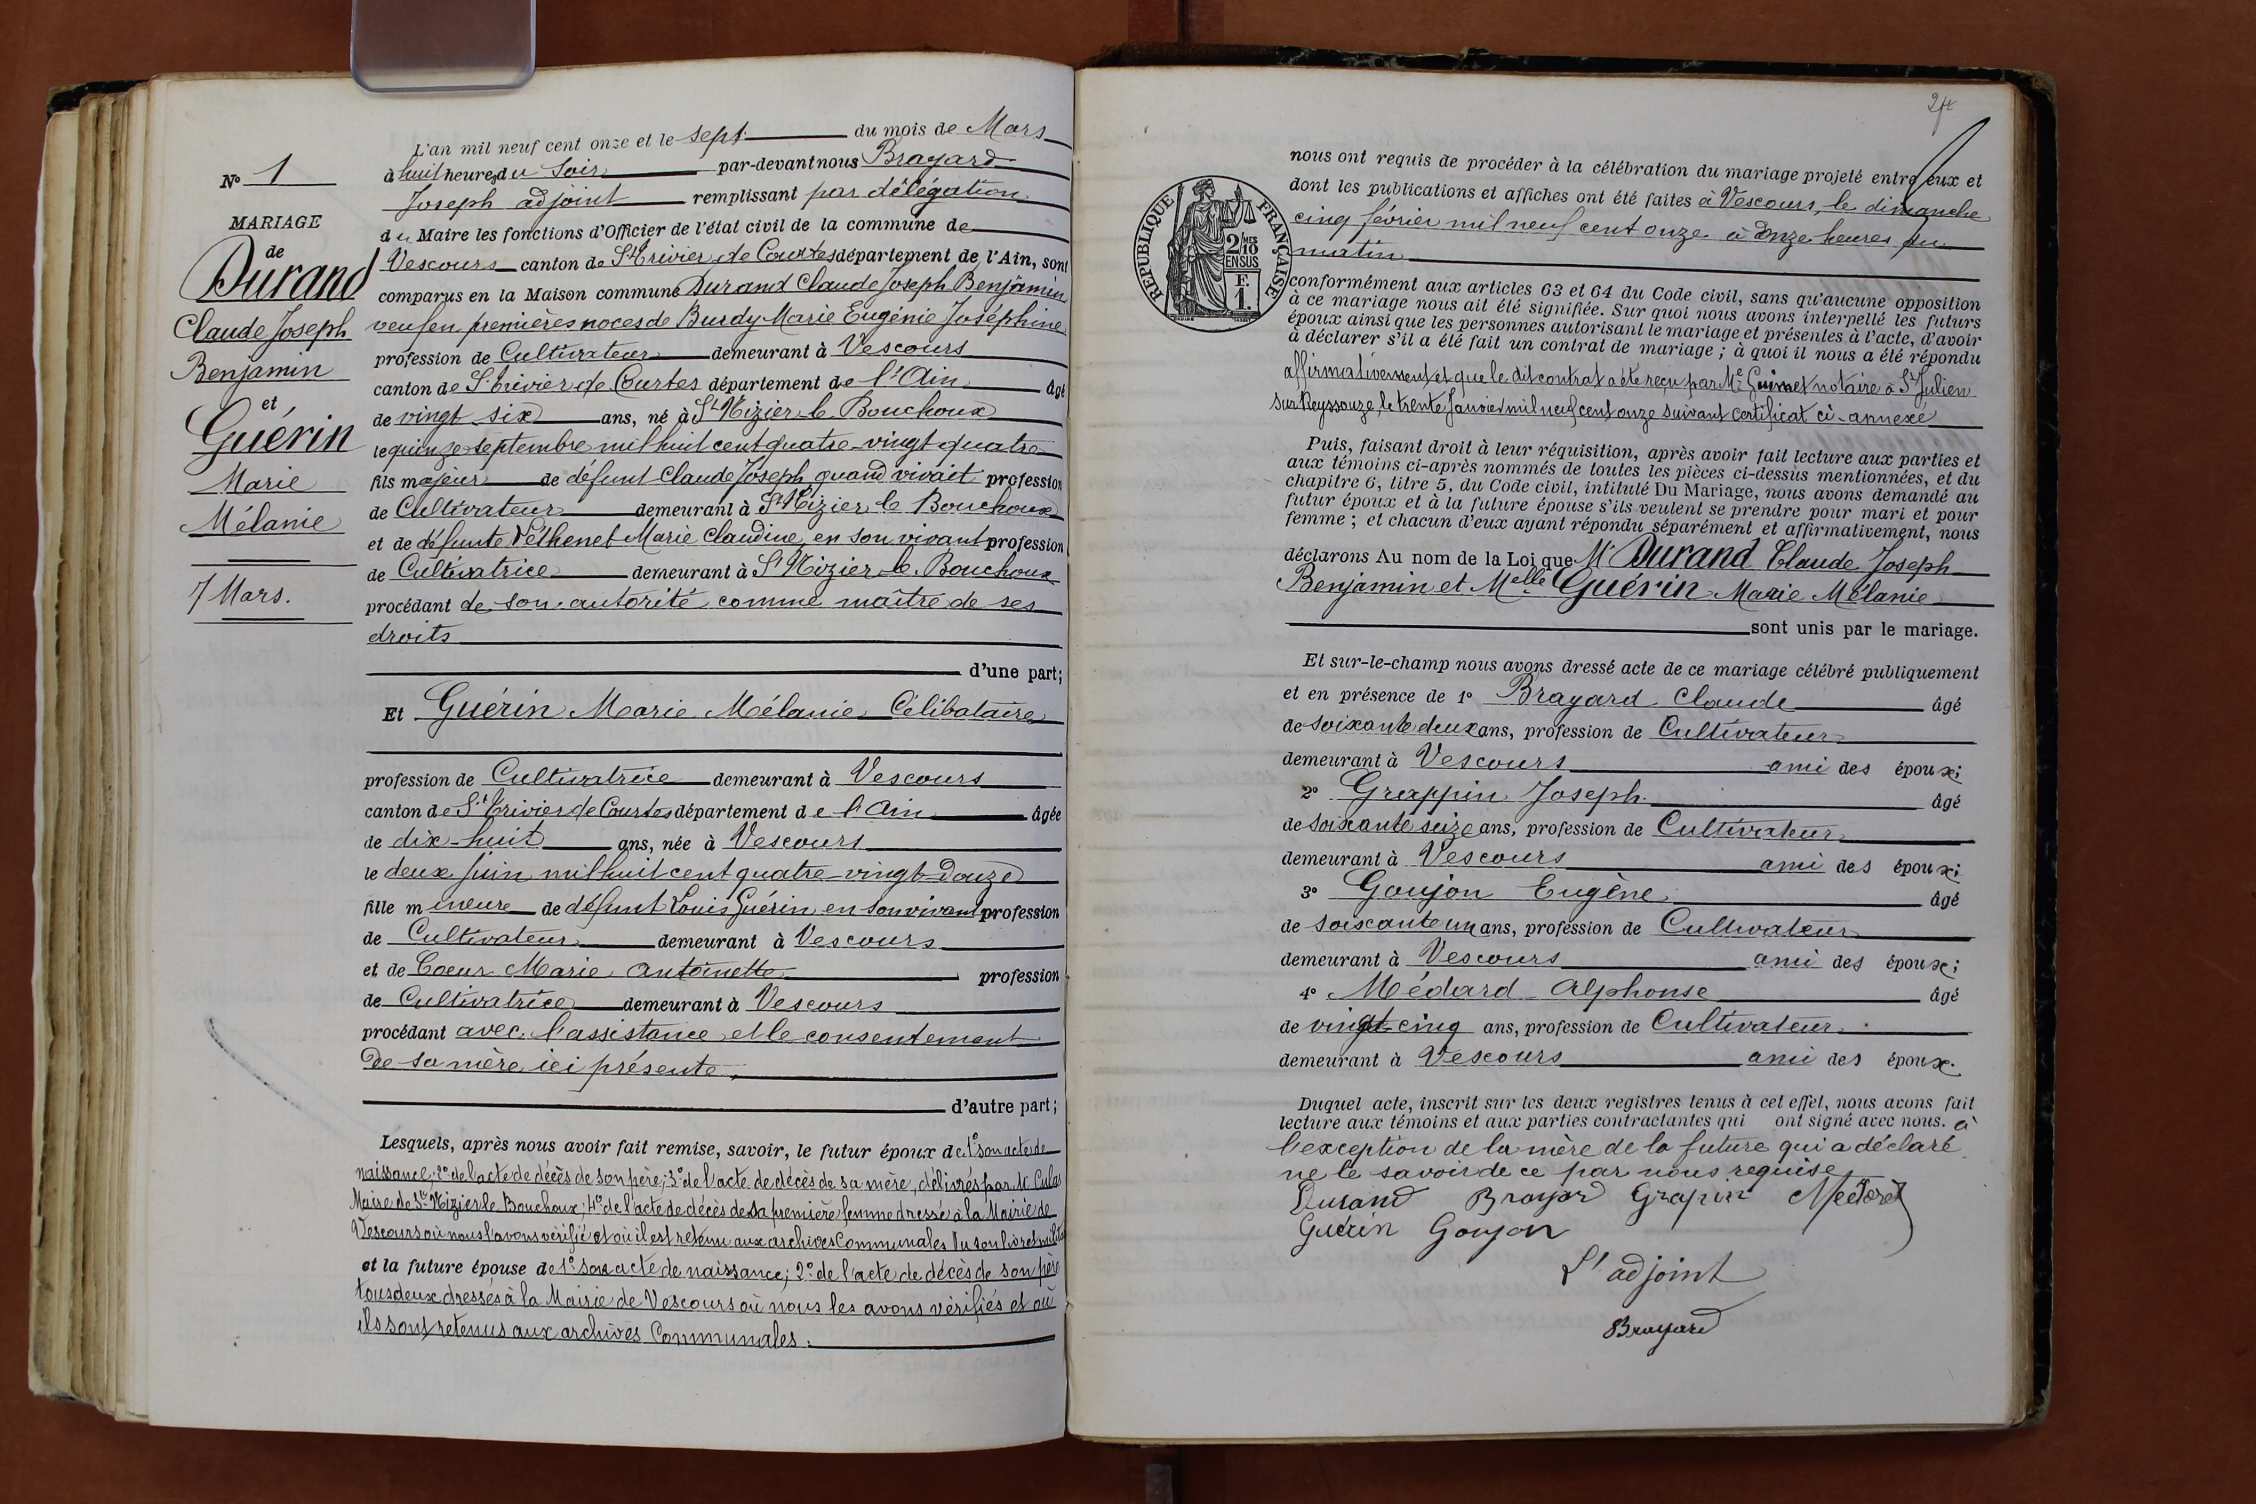 N° 1
MARIAGE
de
Durand
Claude Joseph
Benjamin
et
Guérin
Marie
Mélanie
7 Mars.
L'an mil neuf cent onze et le sept du mois de Mars
à huit heures du soir par-devant nous Brayard
Joseph adjoint remplissant par délégation
du Maire les fonctions d'Officier de l'état civil de la commune de
Vescours canton de St Trivier de Courtes département de l'Ain, sont
comparus en la Maison commune Durand Claude Joseph Benjamin
veuf en premières noces de Burdy Marie Eugénie Joséphine
profession de Cultivateur demeurant à Vescours
canton de St Trivier de Courtes département de l'Ain âgé
de vingt six ans, né à St Nizier le Bouchoux
le quinze septembre mil huit cent quatre-vingt quatre
fils majeur de défunt Claude Joseph quand vivait profession
de Cultivateur demeurant à St Nizier le Bouchoux
et de défunte Véthenet Marie Claudine en son vivant profession
de Cultivatrice demeurant à St Nizier le Bouchoux
procédant de son autorité comme maître de ses
droits
d'une part;
Et Guérin Marie Mélanie Célibataire
profession de Cultivatrice demeurant à Vescours
canton de St Trivier de Courtes département de l'Ain âgée
de dix-huit ans, née à Vescours
le deux juin mil huit cent quatre-vingt-douze
fille mineure de défunt Louis Guérin en son vivant profession
de Cultivateur demeurant à Vescours
et de Coeur Marie Antoinette profession
de Cultivatrice demeurant à Vescours
procédant avec l'assistance et le consentement
de sa mère ici présente,
d'autre part;
Lesquels, après nous avoir fait remise, savoir, le futur époux de 1° son acte de
naissance; 2° de l'acte de décès de son père; 3° de l'acte de décès de sa mère, délivrés par M. Culas
Maire de St Nizier le Bouchoux; 4° de l'acte de décès de sa première femme dressé à la Mairie de
Vescours où nous l'avons vérifié et où il est retenu aux archives Communales Vu son livret
et la future épouse de 1° son acte de naissance; 2° de l'acte de décès de son père
tous deux dressés à la Mairie de Vescours où nous les avons vérifiés et où
ils sont retenus aux archives Communales.
24
RÉPUBLIQUE FRANÇAISE
2 MES
10
EN SUS
F.
1.
nous ont requis de procéder à la célébration du mariage projeté entre eux et
dont les publications et affiches ont été faites à Vescours, le dimanche
cinq février mil neuf cent onze à onze heures du
matin
conformément aux articles 63 et 64 du Code civil, sans qu'aucune opposition
à ce mariage nous ait été signifiée. Sur quoi nous avons interpellé les futurs
époux ainsi que les personnes autorisant le mariage et présentes à l'acte, d'avoir
à déclarer s'il a été fait un contrat de mariage; à quoi il nous a été répondu
affirmativement et que le dit contrat a été reçu par Me Guimet notaire à St Julien
sur Reyssouze, le trente Janvier mil neuf cent onze suivant certificat ci-annexé
Puis, faisant droit à leur réquisition, après avoir fait lecture aux parties et
aux témoins ci-après nommés de toutes les pièces ci-dessus mentionnées, et du
chapitre 6, titre 5, du Code civil, intitulé Du Mariage, nous avons demandé au
futur époux et à la future épouse s'ils veulent se prendre pour mari et pour
femme; et chacun d'eux ayant répondu séparément et affirmativement, nous
déclarons Au nom de la Loi que Mr Durand Claude Joseph
Benjamin et Melle Guérin Marie Mélanie
sont unis par le mariage.
Et sur-le-champ nous avons dressé acte de ce mariage célébré publiquement
et en présence de 1° Brayard Claude âgé
de soixante deux ans, profession de Cultivateur
demeurant à Vescours ami des époux;
2° Grappin Joseph âgé
de soixante seize ans, profession de Cultivateur
demeurant à Vescours ami des époux;
3° Goujon Eugène âgé
de soixante un ans, profession de Cultivateur
demeurant à Vescours ami des époux;
4° Médard Alphonse âgé
de vingt cinq ans, profession de Cultivateur
demeurant à Vescours ami des époux.
Duquel acte, inscrit sur les deux registres tenus à cet effet, nous avons fait
lecture aux témoins et aux parties contractantes qui ont signé avec nous. à
l'exception de la mère de la future qui a déclaré
ne le savoir de ce par nous requise
Durand Brayard Grapin
Guérin Goujon
L'adjoint
Brayard